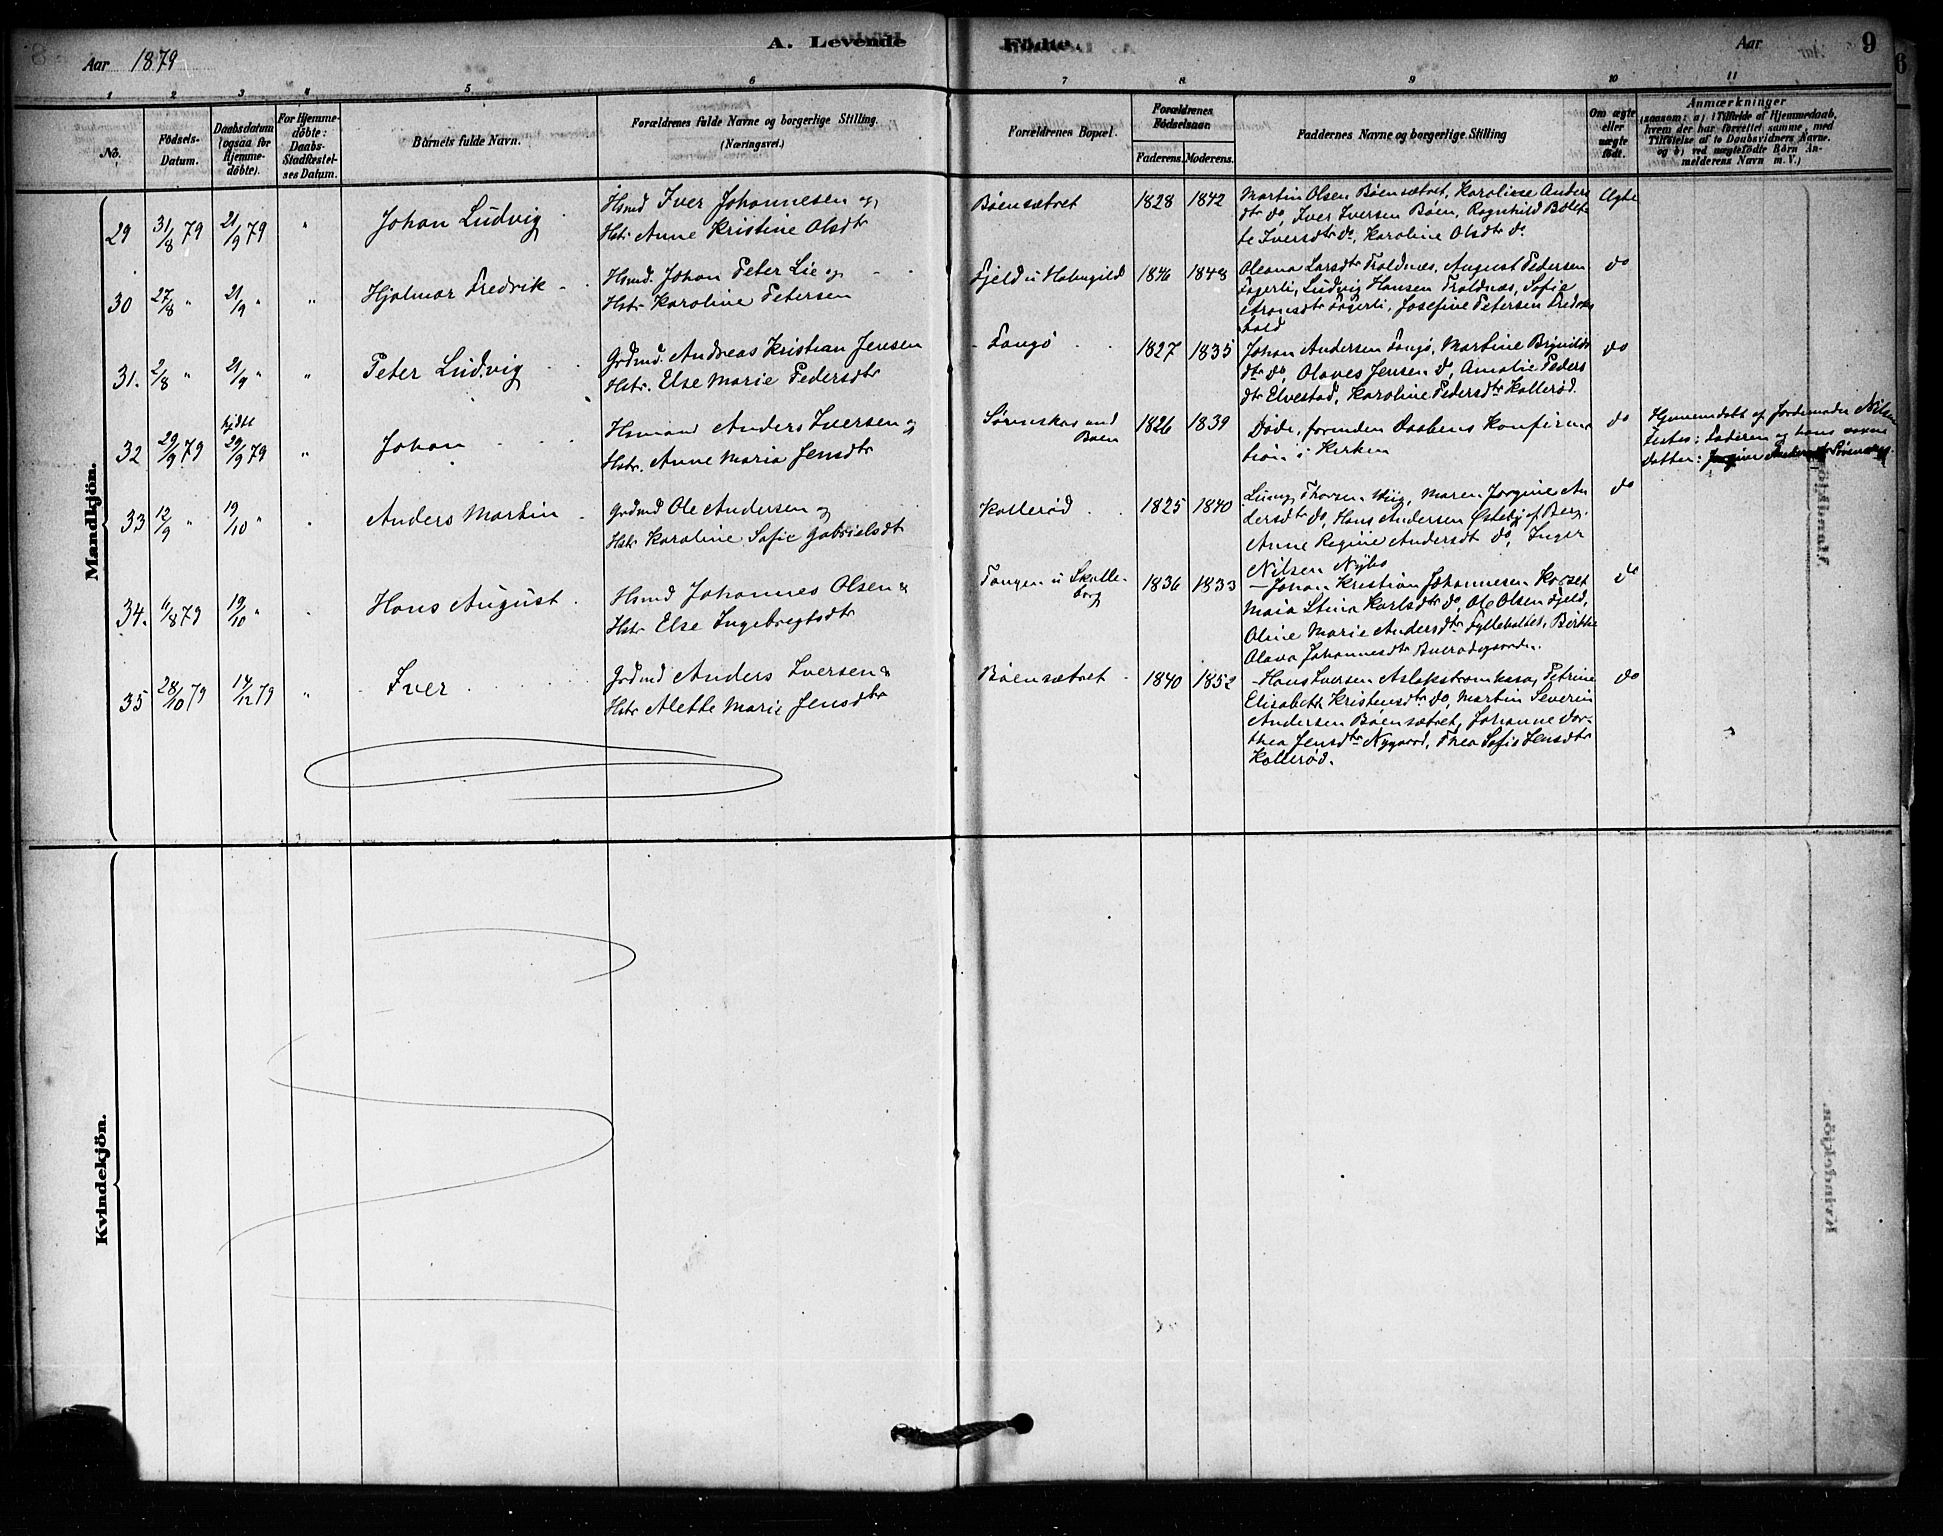 A. Levende
Fødte.
Aar 1879
Aar
9
1 2 3 4 5 6 7 8 9 10 11
No.
Födsels-Datum.
Daabsdatum (ogsaa for Hjemmedöbte).
For Hjemmedöbte: Daabs-Stadfæstelses Datum.
Barnets fulde Navn.
Forældrenes fulde Navne og borgerlige Stilling.
(Næringsvei.)
Forældrenes Bopæl.
Forældrenes Födselsaar
Faderens. Moderens.
Faddernes Navne og borgerlige Stilling
Om ægte eller uægte födt.
Anmærkninger
(saasom: a) i Tilfælde af Hjemmedaab, hvem der har forrettet samme, med Tilföielse af to Daabsvidners Navne. og b) ved uægtefödte Börn Anmelderens Navn m. V.)
Mandkjön.
29 31/8 79 21/9 79 " Johan Ludvig
Hsmd Iver Johannesen og
Hstr Anne Kristine Olsdtr
Böensætret 1828 1842
Martin Olsen Böensætret, Karoline Anders
dtr do, Iver Iversen Böen, Ragnhild Bolet
te Iversdtr do, Karoline Olsdtr do
Ægte
30 27/8 " 21/9 " " Hjalmar Fredrik
Hsmd. Johan Peter Lie og
Hstr Karoline Petersen
Fjeld u 1846 1848
Oleana Larsdtr Troldnæs, August Pedersen
Fagerli, Ludvig Hansen Troldnæs, Sofie
Aronsdtr Fagerli, Josefine Petersen Fredriks
hald
do
31. 2/8 " 21/9 " " Peter Ludvig
Grdmd. Andreas Kristian Jensen
Hstr. Else Marie Pedersdtr
Langö 1827 1835
Johan Andersen Langö, Martine Brynilds
dtr do, Olaves Jensen do, Amalie Peders
dtr Elvestad, Karoline Pedersdtr Kollerød.
do
32 29/9 79 hjdbt 29/9 79 " Johan
Hsmand Anders Iversen og
Hstr. Anne Maria Jensdtr
Böen 1826 1839
Döde, forinden Daabens Konfirma
tion i Kirken
do
Hjemmedöbt af Jordemoder Nilsen
Testes: Faderen og hans voxne
Datter:
33 12/9 " 19/10 " " Anders Martin
Grdmd Ole Andersen og
Hstr Karoline Sofie Gabrielsdt
Kollerød 1825 1840
Thorsen Wiig, Maren Jorgine An
dersdtr do, Hans Andersen Østeby af Berg.
Anne Regine Andersdt do, Inger
Nilsen Nybo
do
34. 11/8 79 19/10 " " Hans August
Hsmd Johannes Olsen &
Hstr Else Ingebregtsdtr
Tangen u Skolle-
borg 1836 1833
Johan Kristian Johannesen Korset
Maia Stina Karlsdtr do, Ole Olsen Fjeld,
Oline Marie Andersdtr Fylleholtet, Birthe
Olava Johannesdtr
do
35 28/10 79 14/12 79 " Iver
Grdmd Anders Iversen &
Hstr Alette Marie Jensdtr
Böensætret 1840 1852
Hans Iversen Aslakstrømkasa, Petrine
Elisabeth Kristensdtr do, Martin Severin
Andersen Böensætret, Johanne Dor-
thea Jensdtr Nygaard, Thea Sofie Jensdtr
Kollerød.
do
Kvindekjön.